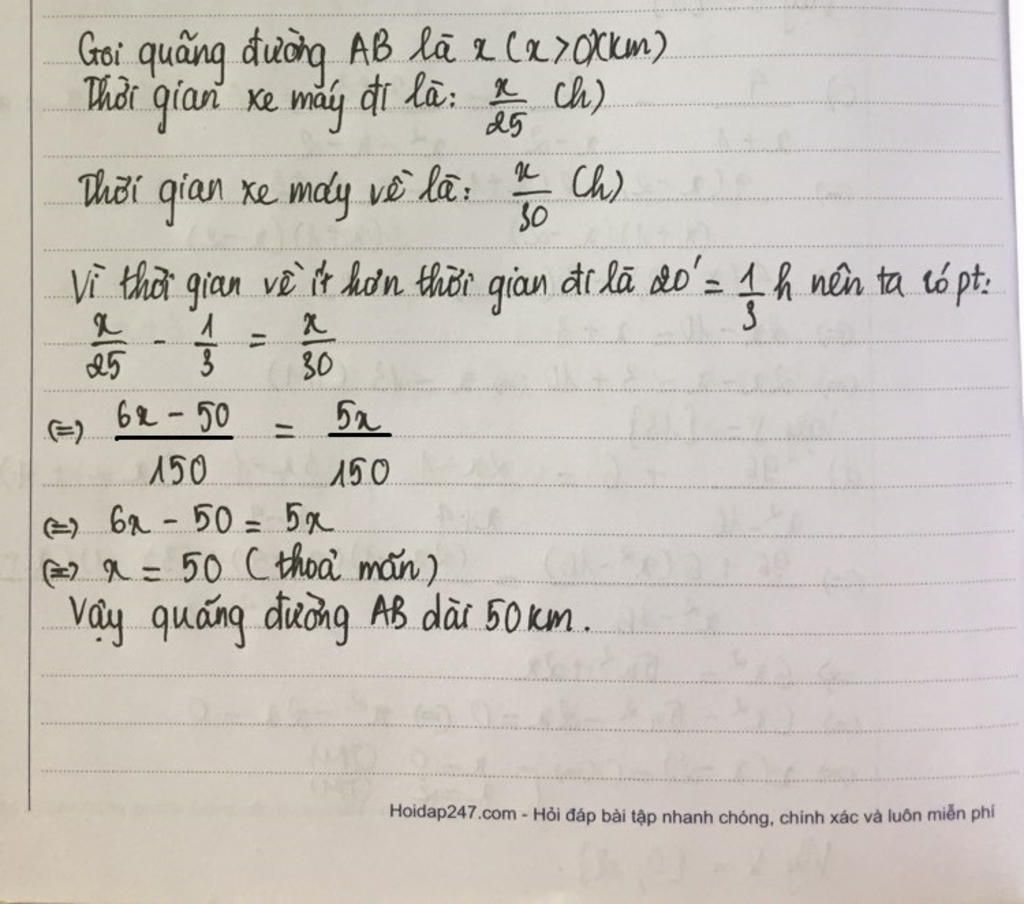 Gọi quãng đường AB là x (x>0)(km)
Thời gian xe máy đi là: x/25 (h)
Thời gian xe máy về là: x/30 (h)
Vì thời gian về ít hơn thời gian đi là 20' = 1/3 h nên ta có pt:
x/25 - 1/3 = x/30
(=) (6x - 50)/150 = 5x/150
(=) 6x - 50 = 5x
(=) x = 50 (thoả mãn)
Vậy quãng đường AB dài 50 km.
Hoidap247.com - Hỏi đáp bài tập nhanh chóng, chính xác và luôn miễn phí